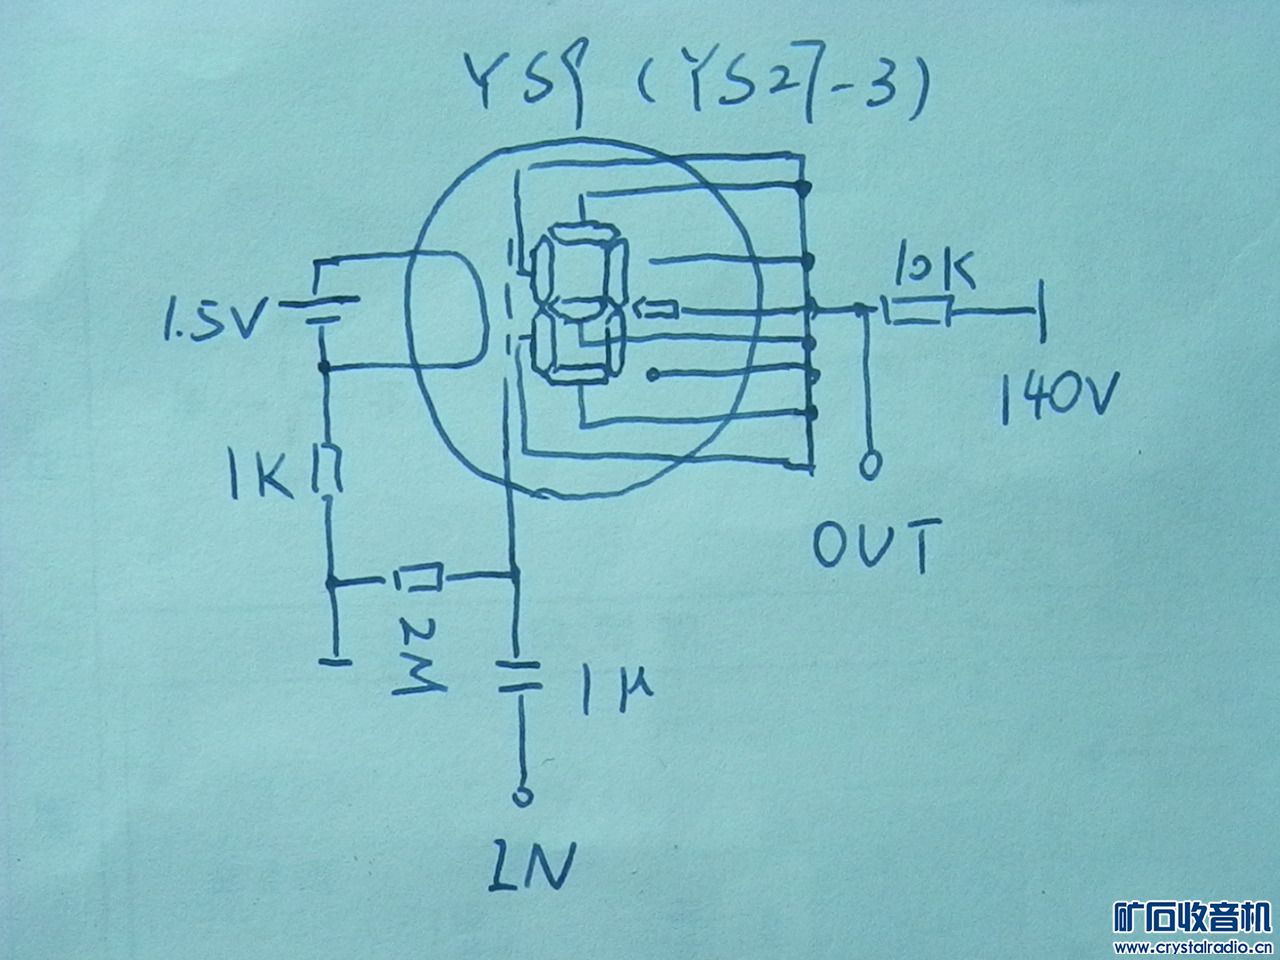 YS9 (YS27-3)
1.5V
10K
140V
1K
OUT
2M
1μ
IN
矿石收音机
www.crystalradio.cn